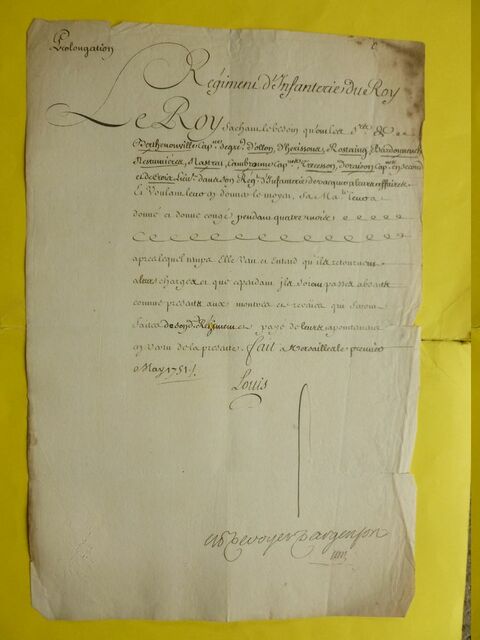 Prolongation
Régiment d'Infanterie du Roy
Le Roy Sachant le besoin qu'ont les S.rs de
Berthenonville Cap.ne de gre.rs Dollon, Dherissons, Rostaing, Bardonnenche
Mesnmieres, Mastrai, Cambronne Cap.nes Cap.ne en Second
et de Lieu.t dans son Reg.t d'Infanterie de vacquer a leurs affaires
Et Voulant leur en donner le moyen, Sa Ma.té leur a
donné et donne congé pendant quatre mois
apres lequel tems Elle Veut et entend qu'ils retournent
a leurs charges et que cependant ils soient passés absents
comme presents aux montres et revües qui seront
faites dud. Régiment et payé de leurs apointemens
en vertu de la presente. fait a Versailles le premier
May 1751./.
Louis
de voyer D'argenson